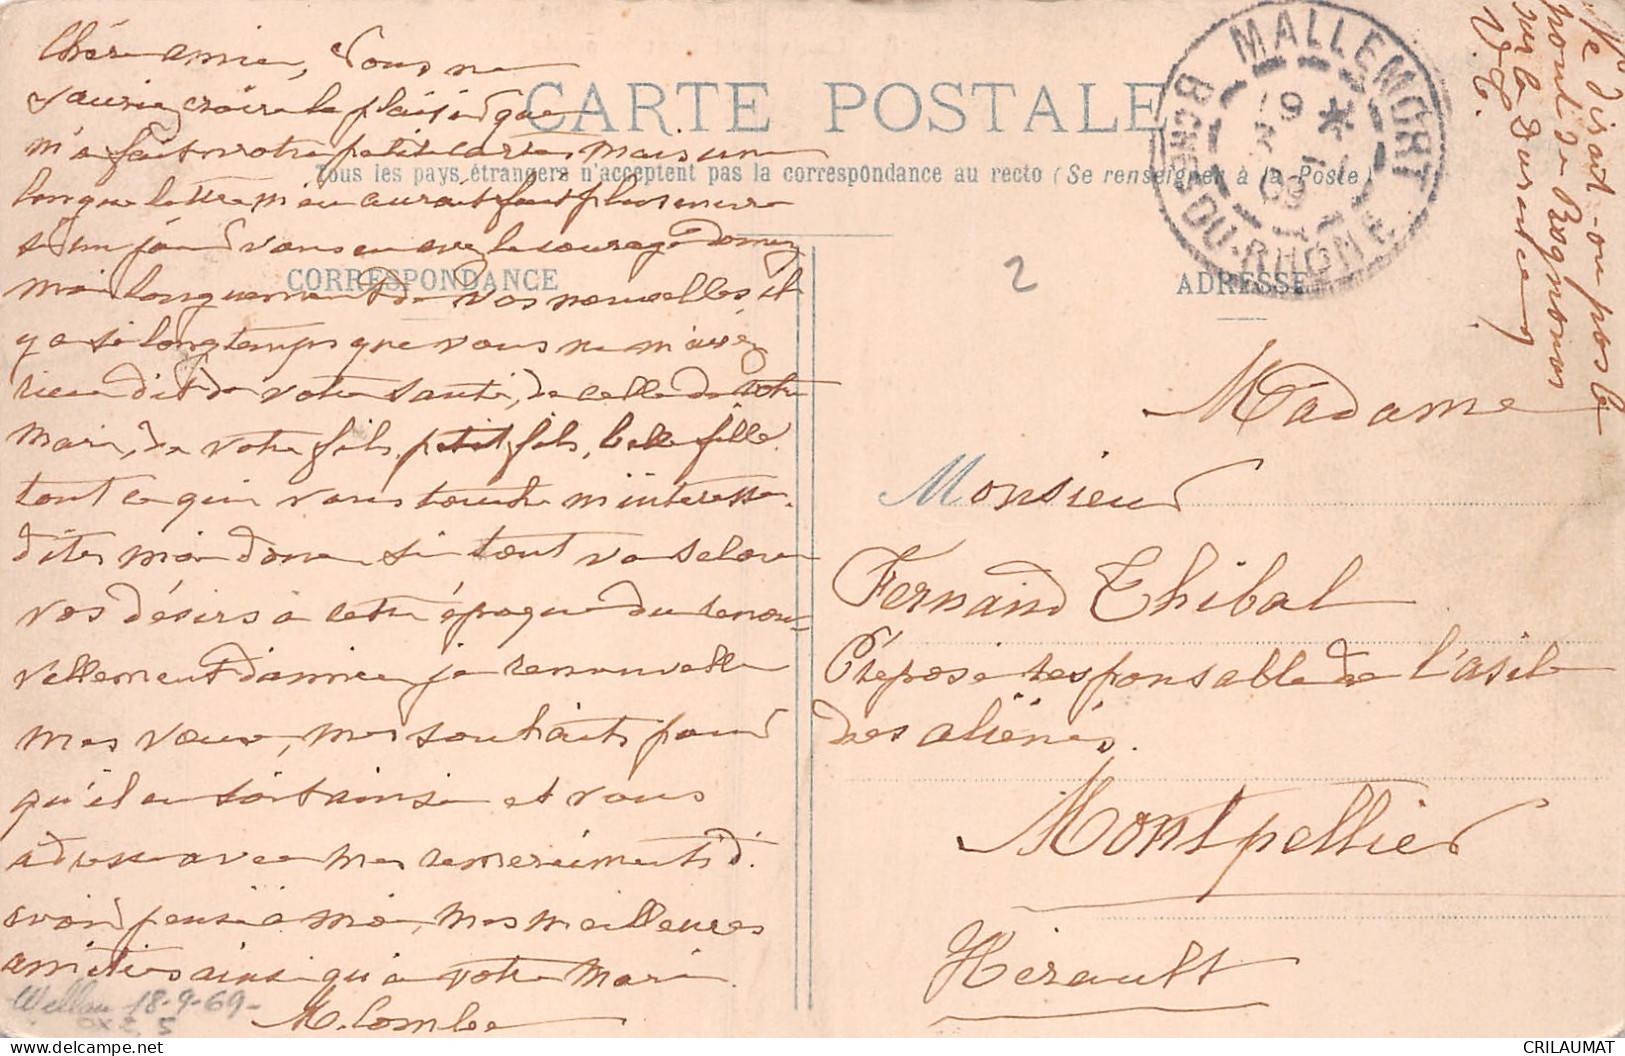 Chère amie, Vous ne
sauriez croire le plaisir que
m'a fait votre petite carte, mais une
longue lettre m'en aurait fait plus encore
si un jour vous en avez le courage donnez
moi longuement de vos nouvelles il
y a si longtemps que vous ne m'avez
rien dit de votre santé, de celle de votre
mari, de votre fils, petit fils, belle fille.
tout ce qui vous touche m'intéresse.
dites moi donc si tout va selon
vos désirs à cette époque du renou-
vellement d'année je renouvelle
mes vœux, mes souhaits pour
qu'il en soit ainsi et vous
adresse avec mes remerciments d'
avoir pensé à moi, mes meilleures
amitiés ainsi qu'à votre mari.
M. Combe
18-9-69-
CARTE POSTALE
Tous les pays étrangers n'acceptent pas la correspondance au recto (Se renseigner à la Poste)
CORRESPONDANCE
ADRESSE
2
MALLEMORT
BCHES-DU-RHONE
19 *
09
Ne dirait-on pas le
pont de Bognonas
sur la Durance,
V.C.
Madame
Monsieur
Fernand Thibal
Préposé responsable de l'asile
des aliénés.
Montpellier
Hérault
CRILAUMAT